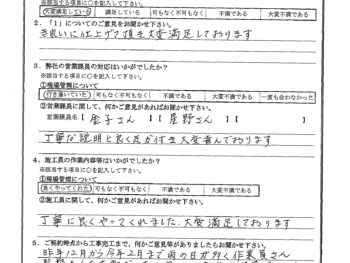 ※該当する項目に○を記入して下さい。
大変満足している 満足している 可もなく不可もなく 不満である 大変不満である
2.「1」についてのご意見をお聞かせ下さい。
き良いに仕上げて頂き大変満足しております
3.弊社の営業議員の対応はいかがでしたか?
※該当する項目に○を記入して下さい。
①現場管理について
行き届いていた 可もなく不可もなく 不満である 大変不満である 一度も会わなかった
②営業議員に関して、何かご意見があればお聞かせ下さい。
営業議員名【金子さん 】【星野さん 】【 】
丁寧な説明と良く気が付き大変喜んでおります
4.施工員の作業内容等はいかがでしたか?
※該当する項目に○を記入して下さい。
①現場管理について
良くやってくれた 可もなく不可もなく 不満である 大変不満である
②施工員に関して、何かご意見があればお聞かせ下さい。
丁寧に良くやってくれました、大変満足しております
5.ご契約時点から工事完工まで、何かご意見等がありましたらお聞かせ下さい。
昨年12月から今年2月まで雨の日が多く作業員さん